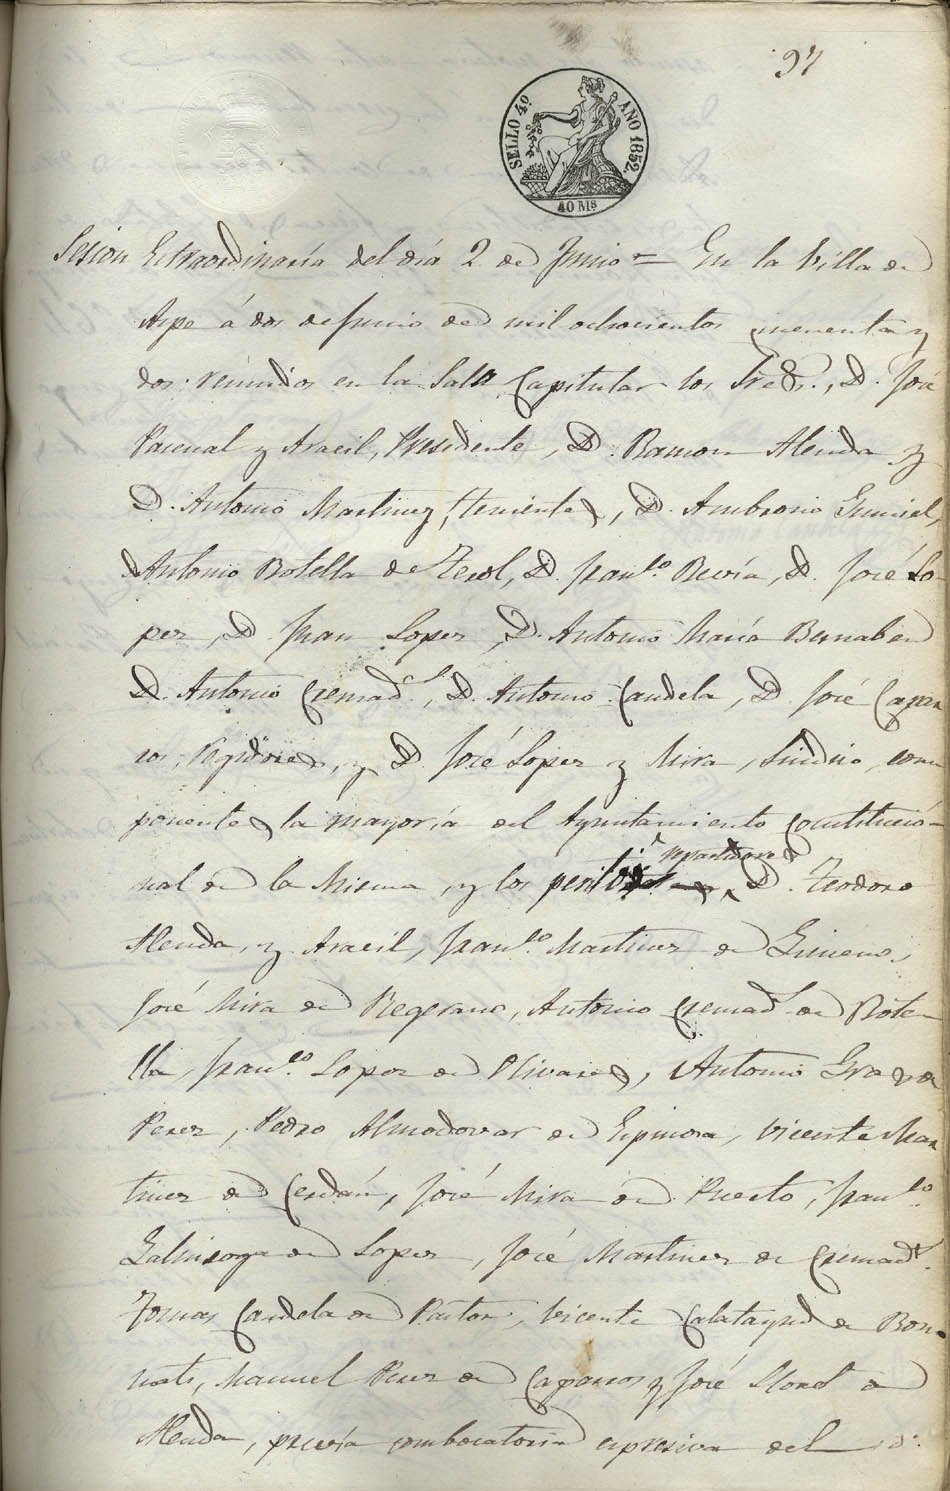 97
SELLO 4º. AÑO 1852.
40 Ms
Sesion Extraordinaria del dia 2 de Junio = En la Villa de
Aspe á dos de Junio de mil ochocientos cincuenta y
dos: reunidos en la Sala Capitular los Sres., D. José
Pascual y Araeil, Presidente, D. Ramon Alenda y
D. Antonio Martinez, tenientes, D. Ambrosio
Antonio Botella de Terol, D. Franco. D. José Lo
pez, D. Juan Lopez, D. Antonio Maria Bernabeu
D. Antonio Cremads., D. Antonio Candela, D. José Capar
ros, Regidores, y D. José Lopez y Mira, Sindico, com
ponentes la mayoria del Ayuntamiento Constitucio
nal de la Misma, y los peritos repartidores, D. Teodoro
Alenda, y Araeil, Franco. Martinez de Gimeno,
José Mira de Antonio Cremads. de Bote
lla, Franco. Lopez de Olivares, Antonio Gra de
Perez, Pedro Almodovar de Espinosa, Vicente Mar
tinez de Cerdán, José Mira de Puerto, Franco.
Galinsoga de Lopez, José Martinez de Cremads.
Tomas Candela de Pastor, Vicente Calatayud de Bon
matí, Manuel Perez de Caparros y José Lloret de
Alenda, previa combocatoria espresiva del